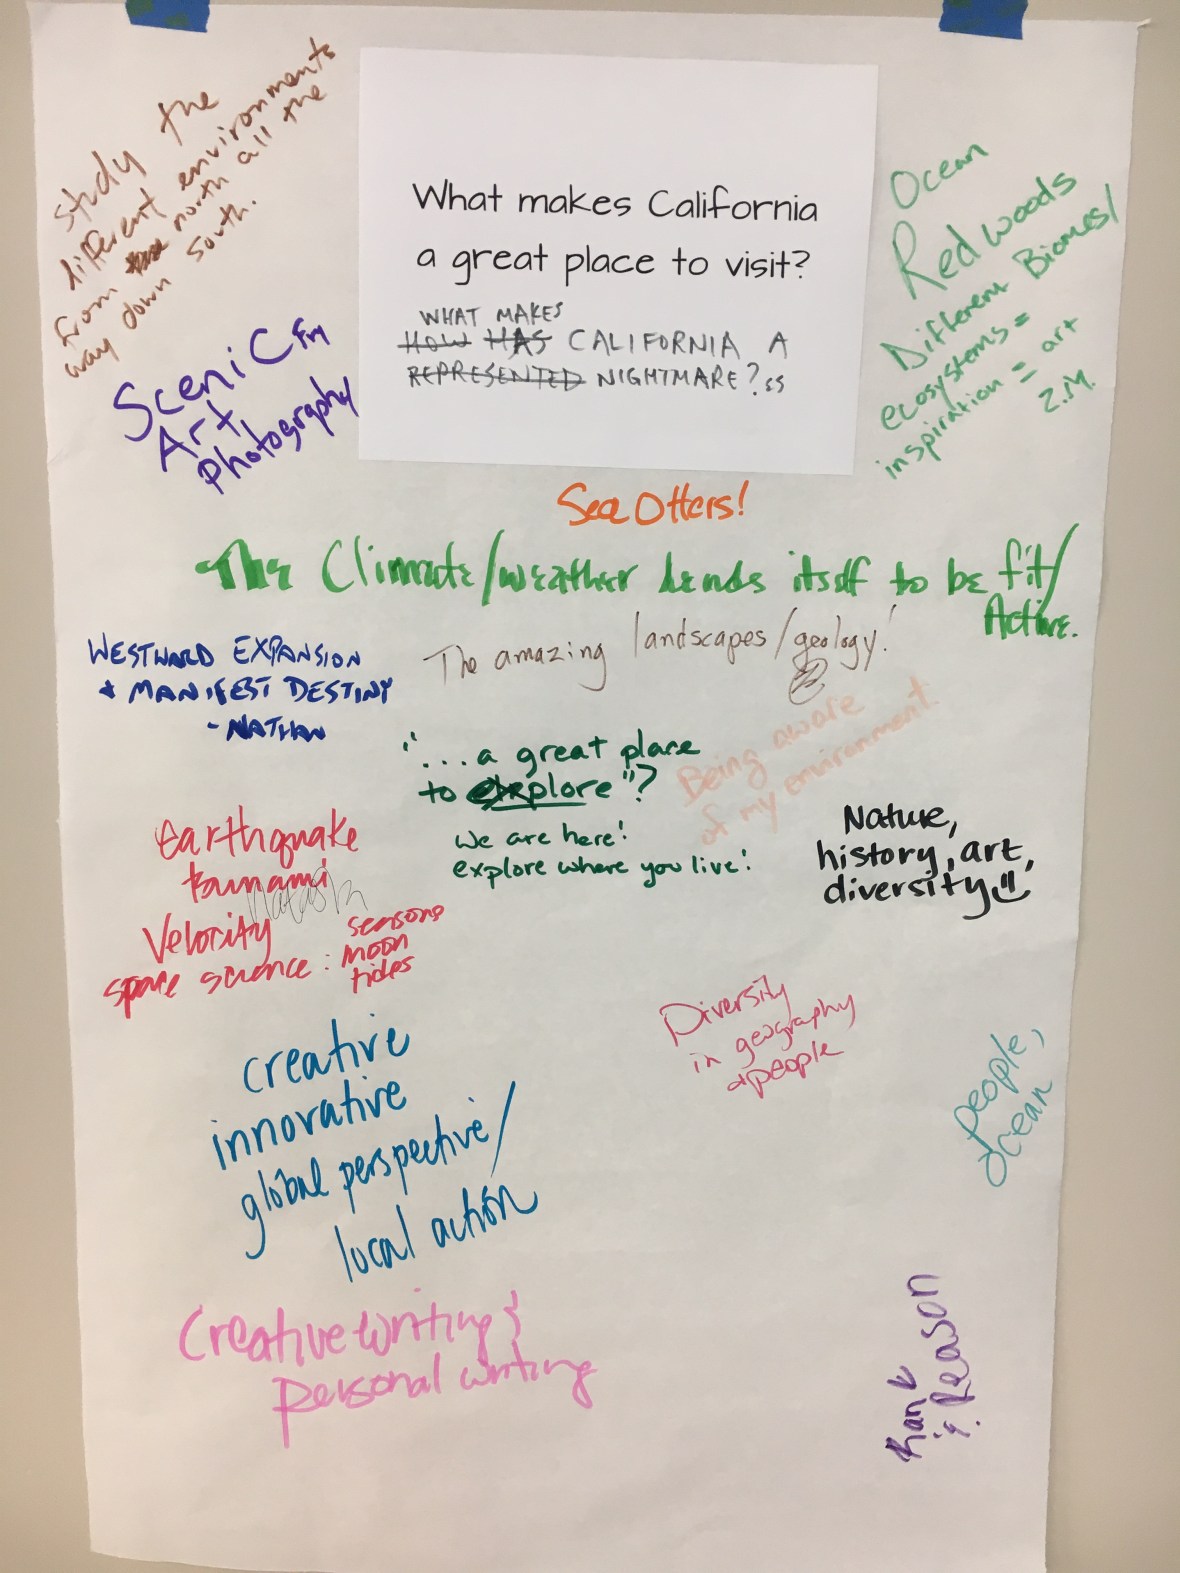 study the
different environments
from the north all the
way down south.
What makes California
a great place to visit?
WHAT MAKES
HOW HAS CALIFORNIA A
REPRESENTED NIGHTMARE? SS
Ocean
Redwoods
Different Biomes/
ecosystems =
inspiration = art
Z.M.
Scenic for
Art,
photography
Sea Otters!
The Climate/weather lends itself to be fit/
Active.
WESTWARD EXPANSION
+ MANIFEST DESTINY
- NATHAN
The amazing landscapes/geology!
"...a great place
to explore"?
we are here!
explore where you live!
Being aware
of my environment.
Nature,
history, art,
diversity
Earthquake
tsunami
Velocity
space science: seasons
moon
tides
Diversity
in geography
+ people
people,
ocean
creative
innovative
global perspective/
local action
Creative writing
personal writing
Rank
& Reason